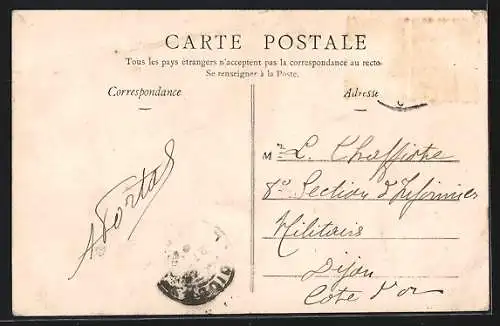 CARTE POSTALE
Tous les pays étrangers n'acceptent pas la correspondance au recto.
Se renseigner à la Poste.
Correspondance
Adresse
Mr L.
8e Section d'Infirmiers
Militaires
Dijon
Côte d'or